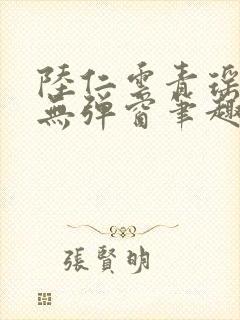 陸仁雲青瑤
無彈窗筆趣
張賢明